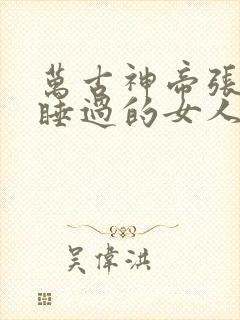 萬古神帝張
睡過的女人
吴偉洪